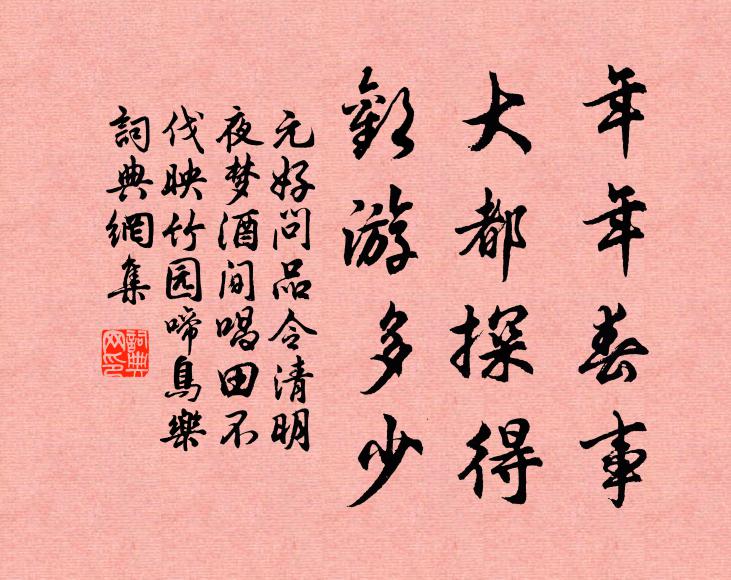 年年春事
大都探得
歡游多少
元好问品令清明
夜梦酒间唱田不
伐映竹园啼鳥樂
詞典網集
詞典
网印